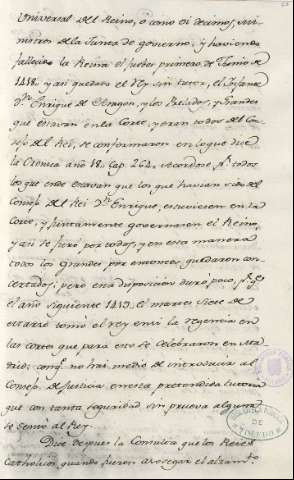 Universal del Reino, ô como oi decimos, Mi-
nistros de la Junta de govierno, y haviendo
fallecido la Reina el Jueves primero de Junio de
1418. y asi quedava el Rey sin tutor, el Infante
Dn. Enrique de Aragon, y los Prelados, y Grandes
que estavan en la Corte, y eran todos del Con-
sejo del Rei, se conformaron en lo que dice
la Cronica año 18. Cap. 264. Acordose pr. todos
los que ende estavan que los que havian sido del
Consejo del Rei Dn. Enrique, estuviesen en la
Corte, y juntamente governasen el Reino,
y asi se juró por todos, y en esta manera
todos los Grandes por entonces quedaron con-
certados; pero esta disposicion duró poco, pr. qe.
el año siguiente 1419. el martes siete de
Marzo tomó el rey en si la regencia en
las cortes que para esto se celebraron en Ma-
drid; conqe. no hai medio de introducir al
Consejo de Justicia en esta pretendida tutoria
que con tanta seguridad, sin prueva alguna
se sentó al Rey.
Dice despues la Consulta que los Reies
Catholicos, quando fueron a sosegar el alzamto.
DE
TOLEDO